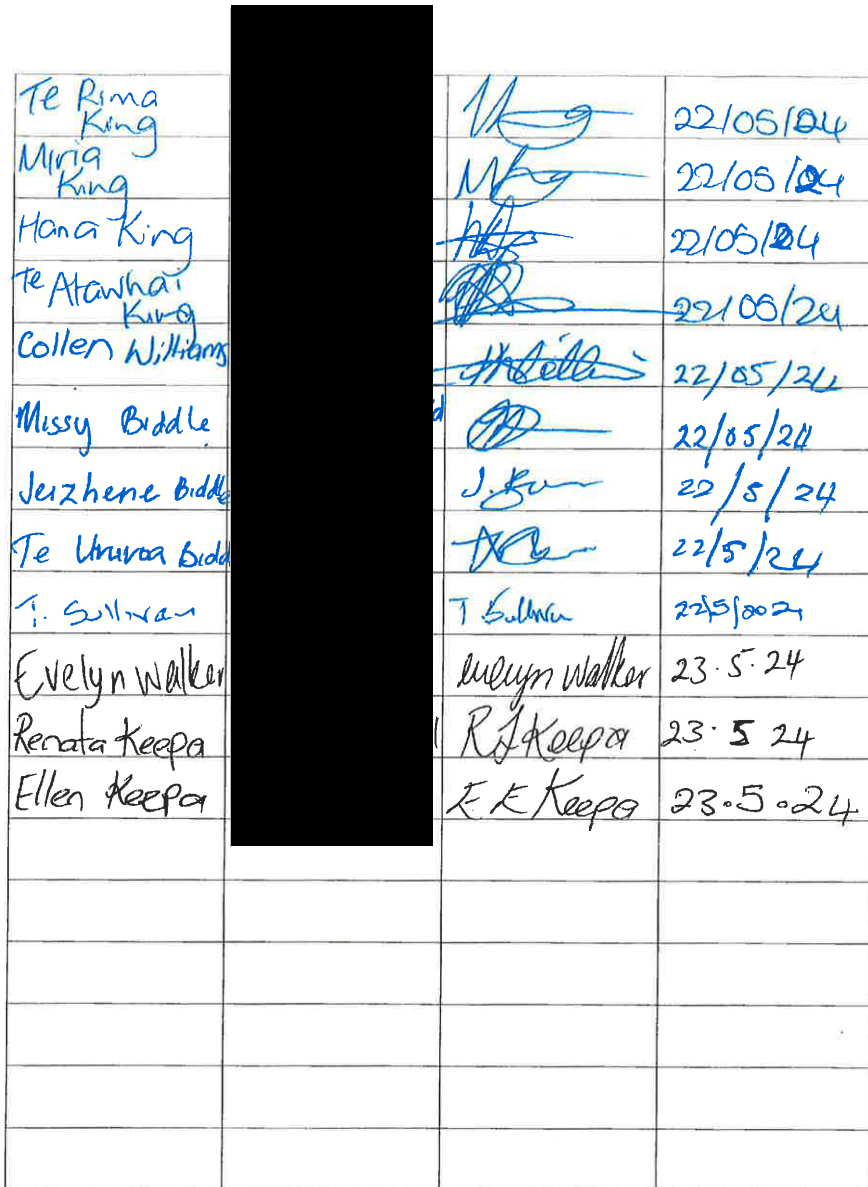 Te Rima King 22/05/24
Miria King 22/05/24
Hana King 22/05/24
Te Atawhai King 22/05/24
Collen Williams 22/05/24
Missy Biddle d 22/05/24
Jeizhene Biddle J. 22/5/24
Te Ururoa Bidd 22/5/24
T. Sullivan T Sullivan 22/5/2024
Evelyn Walker evelyn walker 23.5.24
Renata Keepa R J Keepa 23.5 24
Ellen Keepa E E Keepa 23.5.24